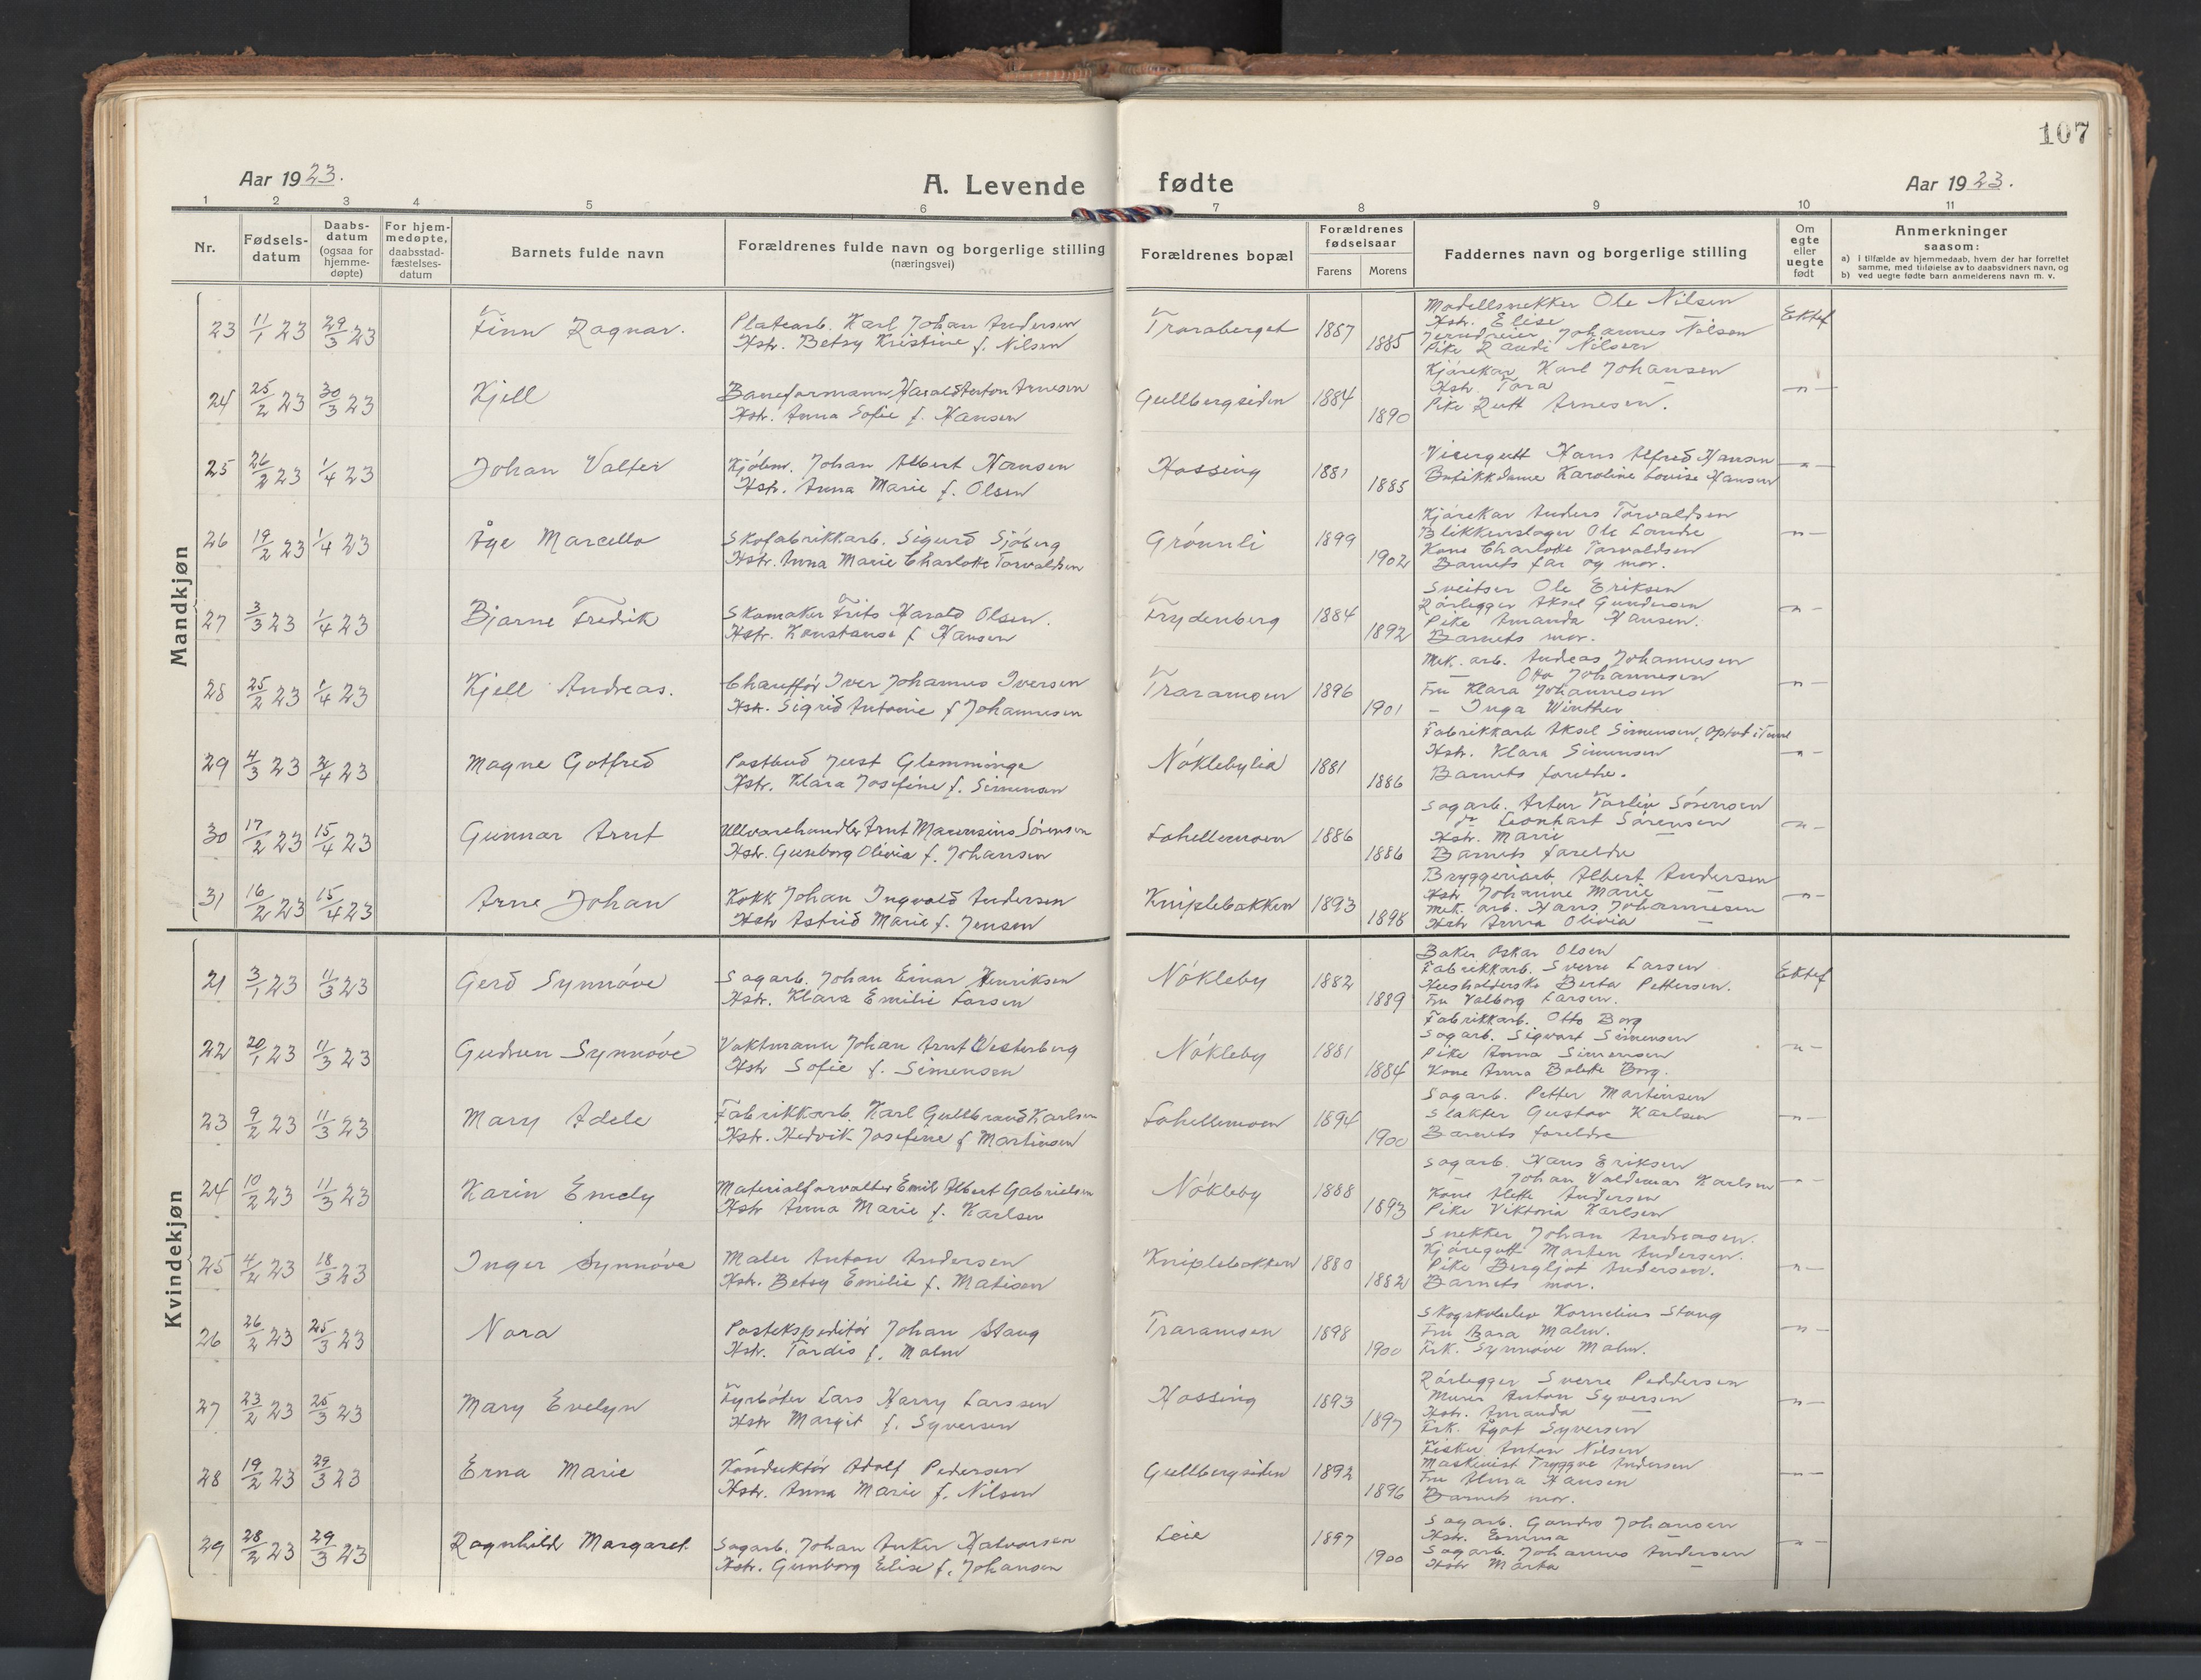 107
Aar 1923.
A. Levende fødte
Aar 1923.
1 2 3 4 5 6 7 8 9 10 11
Nr.
Fødsels-
datum
Daabs-
datum
(ogsaa for
hjemme-
døpte)
For hjem-
medøpte,
daabsstad-
fæstelses-
datum
Barnets fulde navn
Forældrenes fulde navn og borgerlige stilling
(næringsvei)
Forældrenes bopæl
Forældrenes
fødselsaar
Farens Morens
Faddernes navn og borgerlige stilling
Om
egte
eller
uegte
født
Anmerkninger
saasom:
a) i tilfælde av hjemmedaab, hvem der har forrettet
samme, med tilføielse av to daabsvidners navn, og
b) ved uegte fødte barn anmelderens navn m. v.
Mandkjøn
23 11/1 23 29/3 23 Finn Ragnar. Platearb. Karl Johan Andersen
Hstr. Betsy Kristine f. Nilsen
Traraberget 1887 1885
Modellsnekker Ole Nilsen
Hstr. Elise —
Johannes Nilsen
Pike Randi Nilsen
Ektef
24 25/2 23 30/3 23 Kjell Baneformann Harald Anton Arnesen
Hstr. Anna Sofie f. Hansen
Gullbergsiden 1884 1890
Kjörekar Karl Johansen
Hstr. Tora —
Pike Rutt Arnesen.
—"—
25 26/2 23 1/4 23 Johan Valter Kjöbm. Johan Albert Hansen
Hstr. Anna Marie f. Olsen
Hassing 1881 1885
Visergutt Hans Alfred Hansen
Butikkdame Karoline Lovise Hansen
—"—
26 19/2 23 1/4 23 Åge Marcello Skofabrikkarb. Sigurd Sjöberg
Hstr. Anna Marie Charlotte Torvaldsen
Grönnli 1899 1902
Kjörekar Anders Torvaldsen
Blikkenslager Ole Lande
Kone Charlotte Torvaldsen
Barnets far og mor.
—"—
27 3/3 23 1/4 23 Bjarne Fredrik Skomaker Frits Harald Olsen.
Hstr. Konstanse f Hansen
Frydenberg 1884 1892
Sveitser Ole Eriksen
Rörlegger Aksel Gundersen
Pike Amanda Hansen.
Barnets mor.
—"—
28 25/2 23 1/4 23 Kjell Andreas. Chaufför Iver Johannes Iversen
Hstr. Sigrid Antonie f Johannesen
Traramoen 1896 1901
Mek. arb. Andreas Johannesen
— Otto Johannesen
Fru Klara Johannesen
— Inga Winther
—"—
29 4/3 23 2/4 23 Magne Gotfred Postbud Just Glemminge
Hstr. Klara Josefine f. Simensen
Nöklebylia 1881 1886
Fabrikkarb Aksel Simensen,
Hstr. Klara Simensen
Barnets foreldre.
—"—
30 17/2 23 15/4 23 Gunnar Arnt Ullvarehandler Arnt Marensius Sörensen
Hstr. Guneborg Olivia f. Johansen
Lahellemoen 1886 1886
Sagarb. Artur Torleiv Sörensen
do Leonhart Sörensen
Hstr. Marie —
Barnets foreldre
—"—
31 16/2 23 15/4 23 Arne Johan Kokk Johan Ingvald Andersen
Hstr Astrid Marie f. Jensen
Kniplebakken 1893 1898
Bryggeriarb Albert Andersen
Hstr Johanne Marie —
Mek. arb. Hans Johannesen
Hstr Anna Olivia —
—"—
Kvindekjøn
21 3/1 23 11/3 23 Gerd Synnöve Sagarb. Johan Einar Henriksen
Hstr. Klara Emilie Larsen
Nökleby 1882 1889
Baker Oskar Olsen
Fabrikkarb. Sverre Larsen
Husholderske Berta Pettersen.
Fru Valborg Larsen.
Ektef
22 20/1 23 11/3 23 Gudrun Synnöve Vaktmann Johan Arnt Westerberg
Hstr Sofie f. Simensen
Nökleby 1881 1884
Fabrikkarb. Otto Borg
Sagarb. Sigvart Simensen
Pike Anna Simensen
Kone Anna Bolette Borg.
—"—
23 9/2 23 11/3 23 Mary Adele Fabrikkarb. Karl Gullbrand Karlsen
Hstr. Hedvik Josefine f Martinsen
Lahellemoen 1894 1900
Sagarb. Petter Martinsen
Slakter Gustav Karlsen
Barnets foreldre
—"—
24 10/2 23 11/3 23 Karin Emely Materialforvalter Emil Albert Gabrielsen
Hstr Anna Marie f. Karlsen
Nökleby 1888 1893
Sagarb. Hans Eriksen
— Johan Valdemar Karlsen
Kone Alette Andersen
Pike Viktoria Karlsen
—"—
25 4/2 23 18/3 23 Inger Synnöve Maler Anton Andersen
Hstr. Betsy Emilie f. Matisen
Kniplebakken 1880 1882
Snekker Johan Andreasen.
Kjöregutt Morten Andersen.
Pike Bergljot Andersen.
Barnets mor.
—"—
26 26/2 23 25/3 23 Nora Postekspeditör Johan Stang
Hstr. Tordis f. Malm
Traramoen 1898 1900
Skogskoleelev Kornelius Stang
Fru Malm.
Frk. Synnöve Malm.
—"—
27 23/2 23 25/3 23 Mary Evelyn Fyrböter Lars Harry Larssen
Hstr Margit f. Syversen
Hassing 1893 1897
Rörlegger Sverre Peddersen
Murer Anton Syversen
Hstr. Amanda —
Frk. Ågot Syversen
—"—
28 19/2 23 29/3 23 Erna Marie Konduktör Adolf Pedersen
Hstr. Anna Marie f. Nilsen
Gullbergsiden 1892 1896
Fisker Anton Nilsen
Maskinist Tryggve Andersen
Fru Alma Hansen
Barnets mor.
—"—
29 28/2 23 29/3 23 Ragnhild Margaret. Sagarb. Johan Anker Halvorsen
Hstr. Gunborg Elise f. Johansen
Leie 1897 1900
Sagarb. Johansen
Hstr. Emma —
Sagarb. Johannes Andersen
Hstr Marta —
—"—